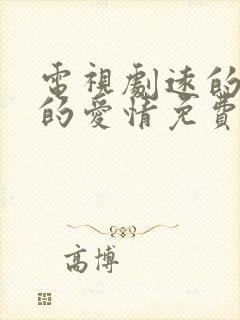 電視劇速的
的愛情免費
高博